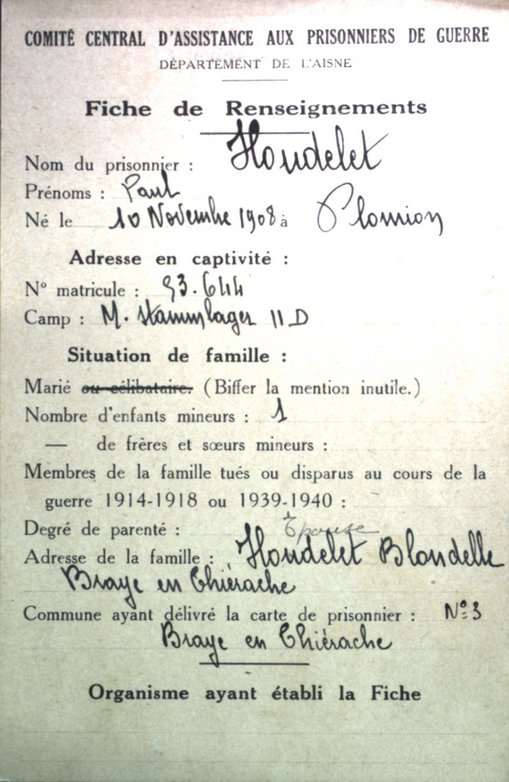 COMITÉ CENTRAL D'ASSISTANCE AUX PRISONNIERS DE GUERRE
DÉPARTEMENT DE L'AISNE
Fiche de Renseignements
Nom du prisonnier : Houdelet
Prénoms : Paul
Né le 10 Novembre 1908 à Plomion
Adresse en captivité :
N° matricule : 93.644
Camp : M. Stammlager II D
Situation de famille :
Marié ou célibataire. (Biffer la mention inutile.)
Nombre d'enfants mineurs : 1
— de frères et sœurs mineurs :
Membres de la famille tués ou disparus au cours de la
guerre 1914-1918 ou 1939-1940 :
Degré de parenté : Épouse
Adresse de la famille : Houdelet Blondelle
Braye en Thiérache
Commune ayant délivré la carte de prisonnier : N° 3
Braye en Thiérache
Organisme ayant établi la Fiche